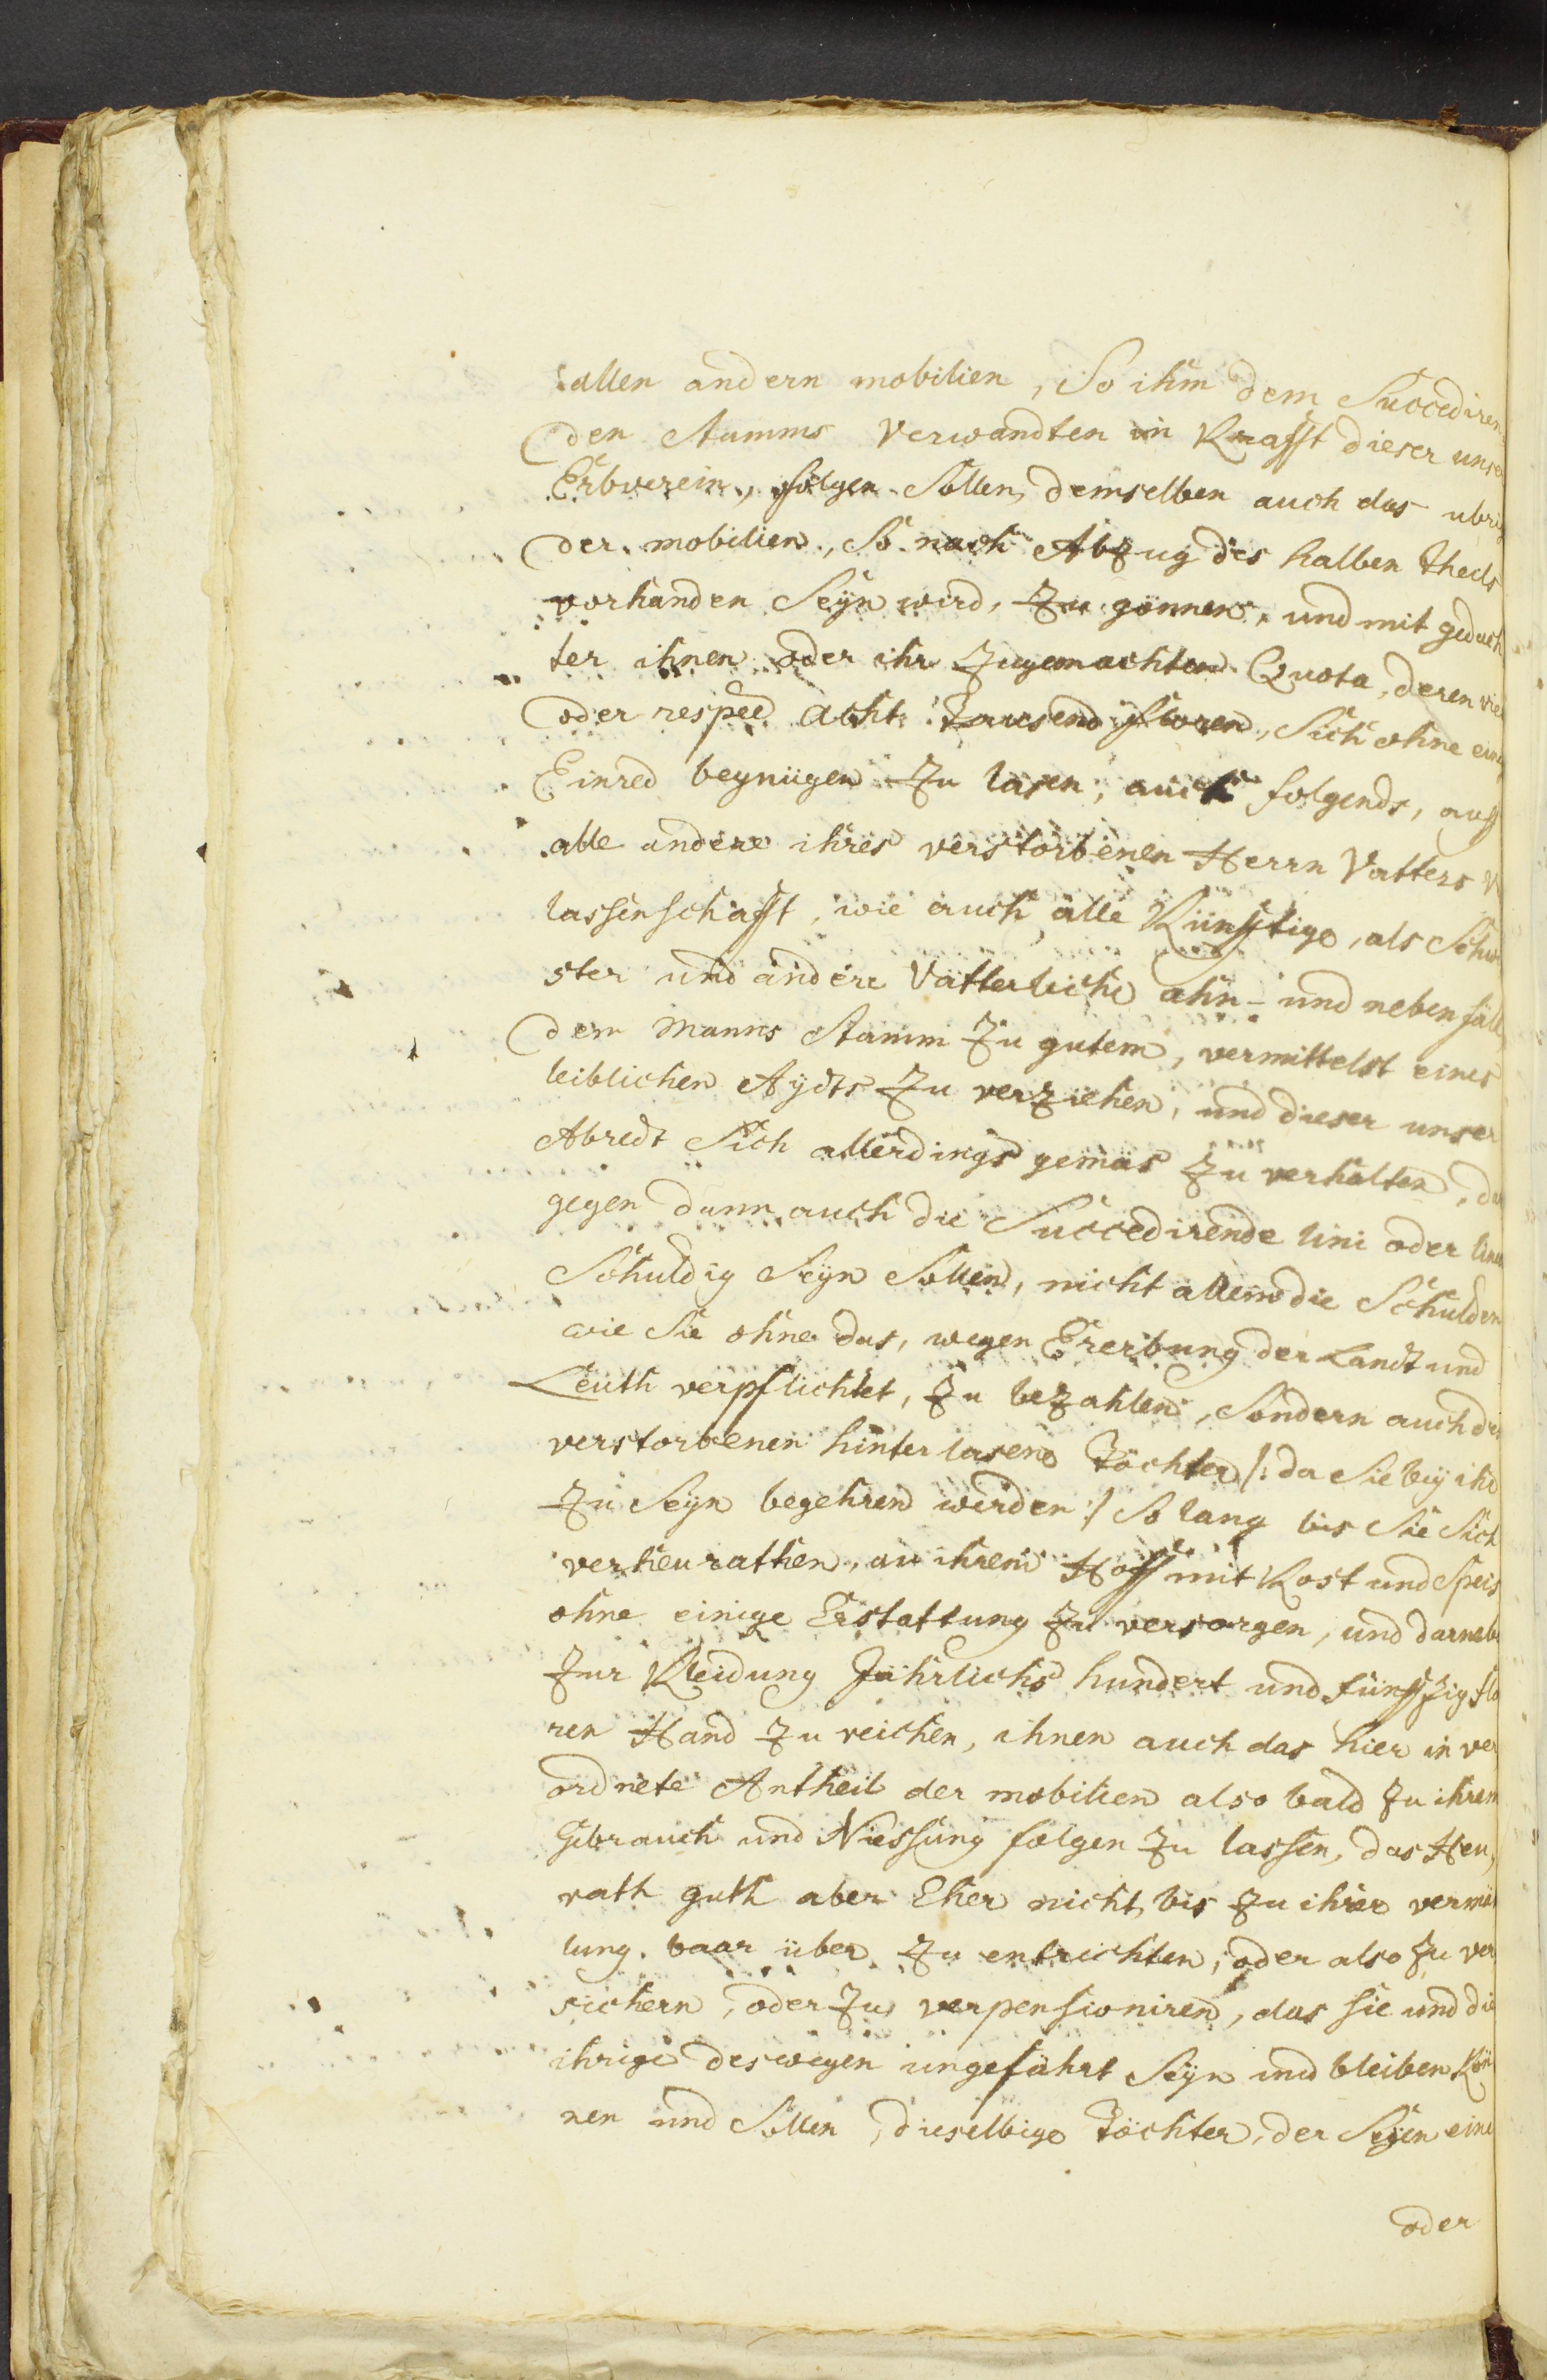 allen andern mobilien, So ihm dem Succediren
den Stamms Verwandten in Krafft dieser unser
Erbverein, folgen Sollen, demselben auch das ubrig
der mobilien, So nach Abzug des halben theils
vorhanden Seyn wird, Zu gönnen, und mit gedach
ter ihnen oder ihr Zugemachten Quota, deren vier
oder respec acht Tausend floren, Sich ohne einig
Einred begnügen Zu lasen, auch folgends, auff
alle andere ihres verstorbenen Herrn Vatters V
lassenschafft, wie auch alle Künfftige, als Schwe
ster und andere Vatterliche ahn- und neben fäll
dem Manns Stamm Zu gutem, vermittelst eines
leiblichen Aydts Zu verziehen, und dieser unser
Abredt Sich allerdings gemäs Zu verhalten, da
gegen dann auch die Succedirende lini oder linien
Schuldig Seyn Sollen, nicht allein die Schulden
wie Sie ohne das, wegen Ererbung der Landt und
Leuth verpflichtet, Zu bezahlen, Sondern auch des
verstorbenen hinterlasene Töchter /: da Sie bey ihr
Zu Seyn begehren werden :/ So lang bis Sie Sich
verheurathen, an ihrem Hoff mit Kost und Speis
ohne einige Erstattung Zu versorgen, und darnebe
Zur Kleidung Jährlichs hundert und fünffzig flo
ren Hand Zu reichen, ihnen auch das hier in ver
ordnete Antheil der mobilien also bald Zu ihrem
Gebrauch und Niessung folgen Zu lassen, das Heu,
rath guth aber Eher nicht, bis Zu ihrer vermäh
lung, baar über Zu entrichten, oder also Zu ver
sichern, oder Zu verpensioniren, das sie und die
ihrige deswegen ungefährt Seyn und bleiben Kön
nen und Sollen, dieselbige Töchter, der Seyen eine
oder